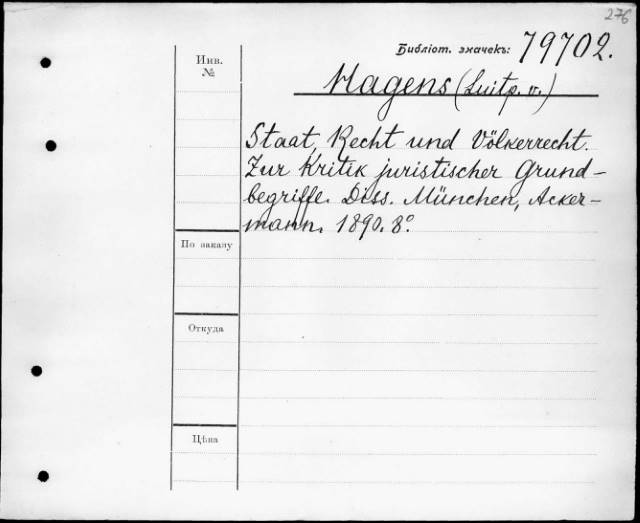 276
Библіот. значекъ: 79702.
Инв.
№
Hagens (Luitp. v.)
Staat, Recht und Völkerrecht.
Zur Kritik juristischer Grund-
begriffe. Diss. München, Acker-
mann. 1890. 8º.
По заказу
Откуда
Цѣна